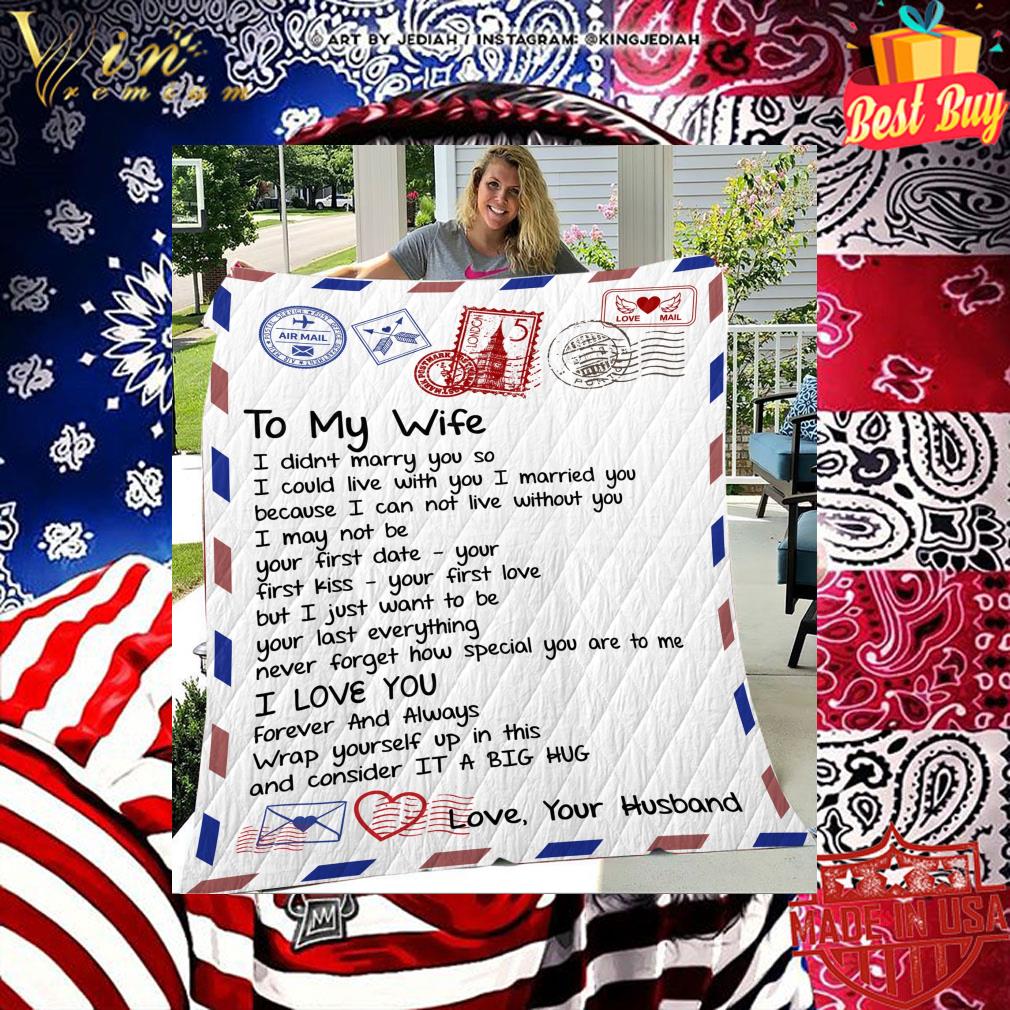 Vin
remcom
© ART BY JEDIAH / INSTAGRAM: @KINGJEDIAH
Best Buy
AIR MAIL
LONDON
5
LOVE MAIL
To My Wife
I didnt marry you so
I could live with you I married you
because I can not live without you
I may not be
your first date - your
first kiss - your first love
but I just want to be
your last everything
never forget how special you are to me
I LOVE YOU
Forever And Always
Wrap yourself up in this
and consider IT A BIG HUG
Love, Your Husband
MADE IN USA